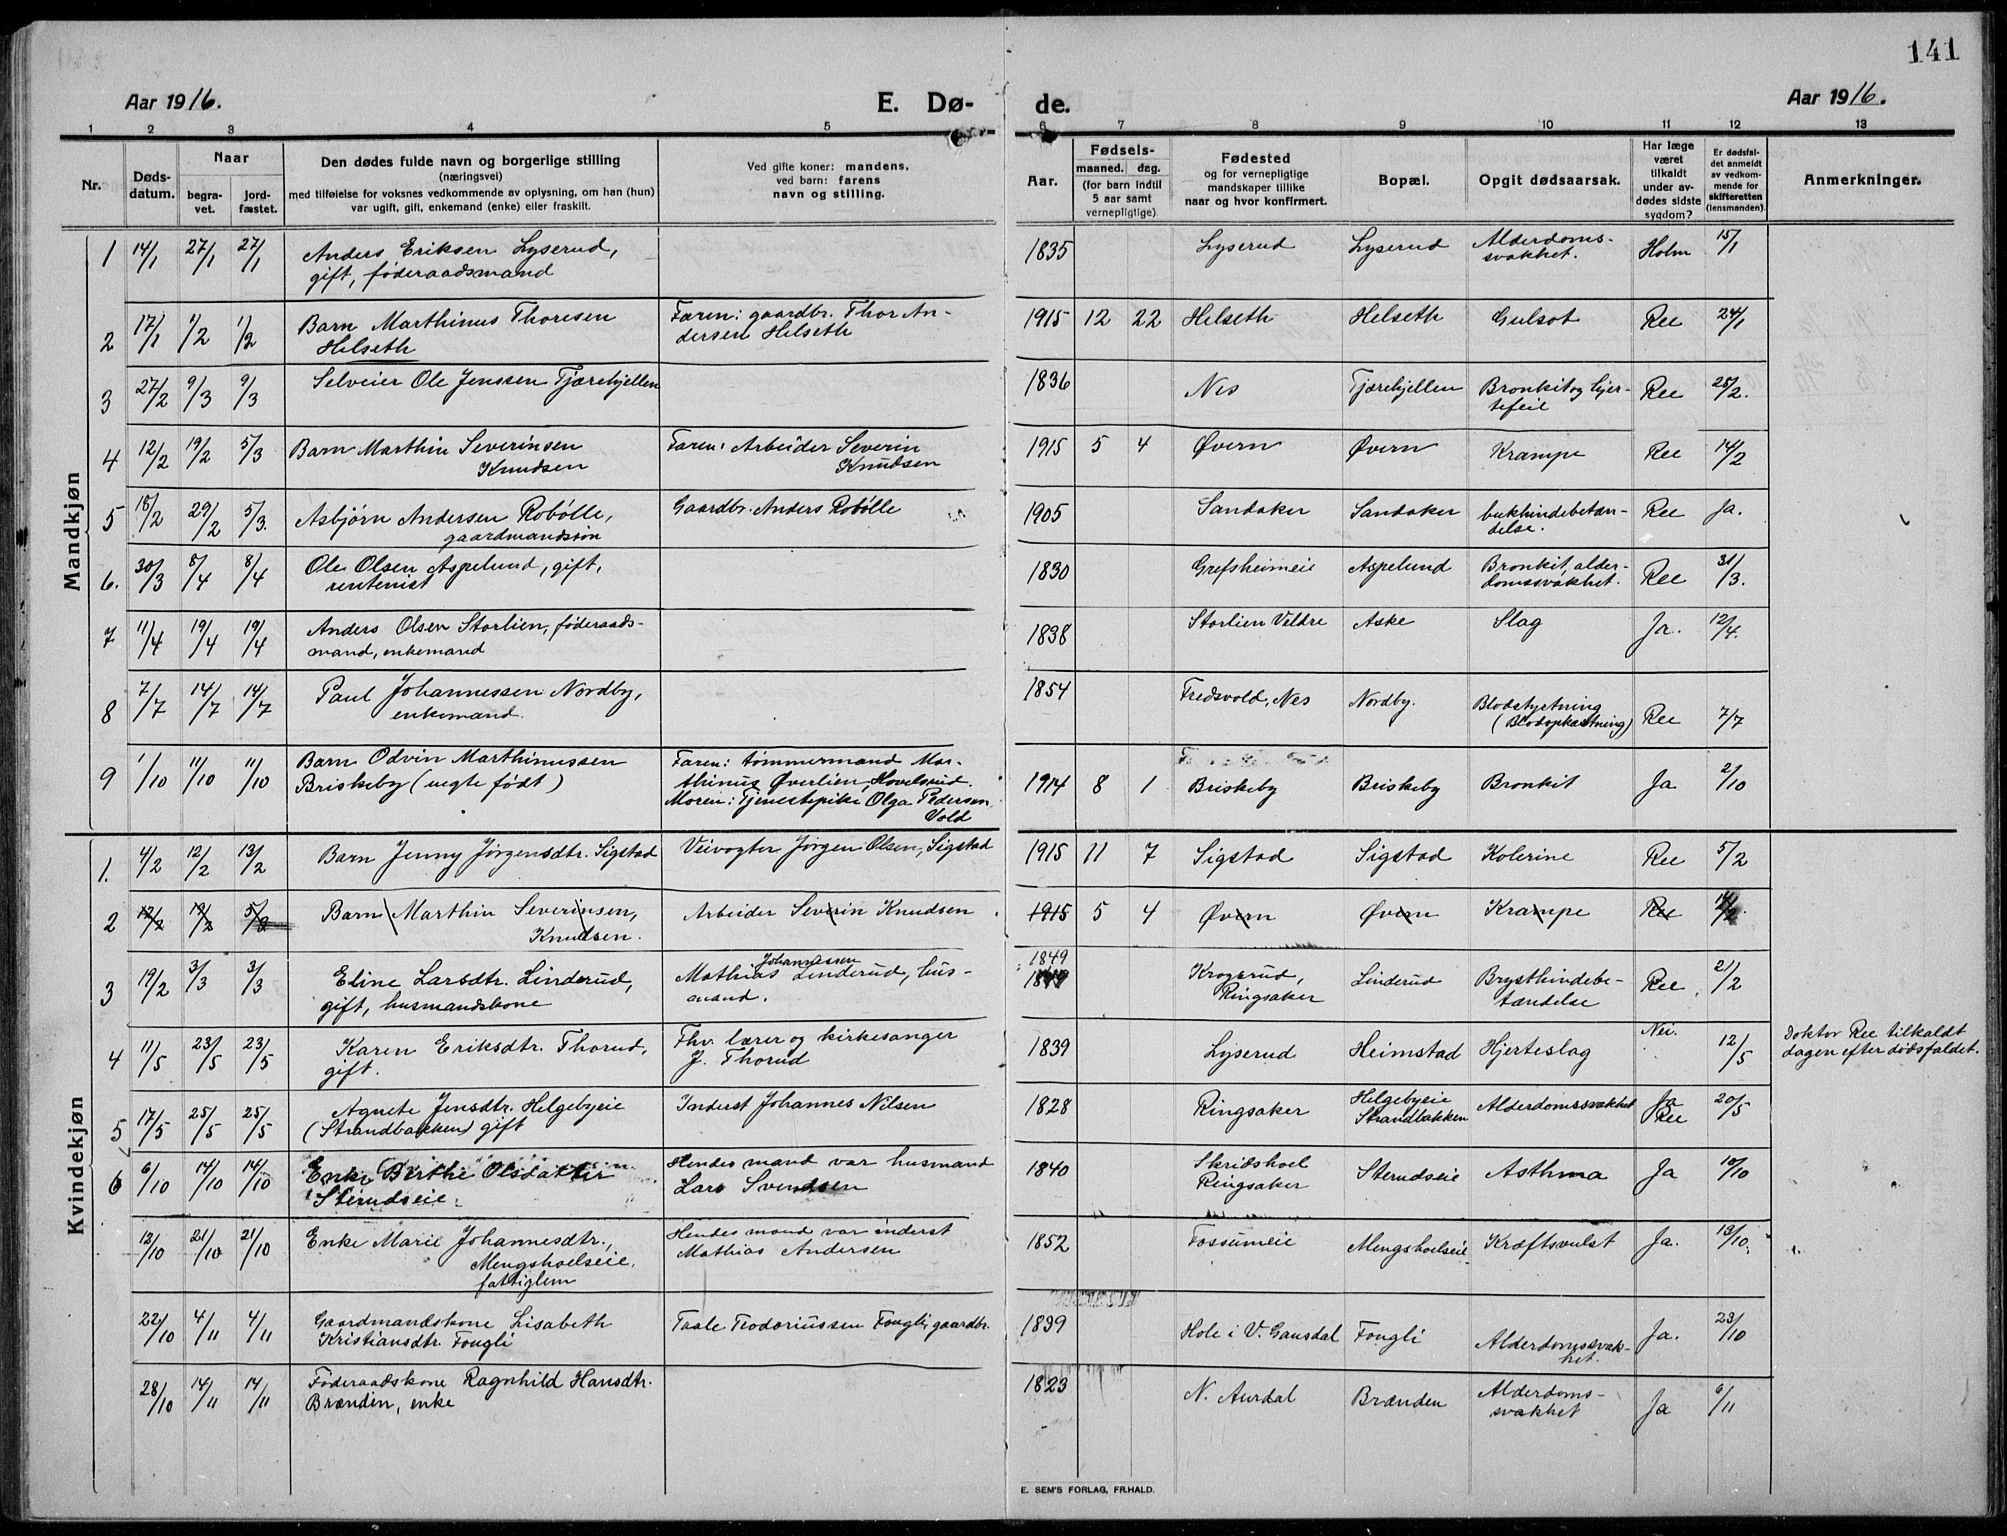 141
Aar 1916.
E. Dø-
de.
Aar 1916.
1 2 3 4 5 6 7 8 9 10 11 12 13
Nr.
Døds-
datum.
Naar
begra-
vet.
jord-
fæstet.
Den dødes fulde navn og borgerlige stilling
(næringsvei)
med tilføielse for voksnes vedkommende av oplysning, om han (hun)
var ugift, gift, enkemand (enke) eller fraskilt.
Ved gifte koner: mandens,
ved barn: farens
navn og stilling.
Aar.
Fødsels-
maaned. dag.
(for barn indtil
5 aar samt
vernepligtige)
Fødested
og for vernepligtige
mandskaper tillike
naar og hvor konfirmert.
Bopæl.
Opgit dødsaarsak.
Har læge
været
tilkaldt
under av-
dødes sidste
sygdom?
Er dødsfal-
det anmeldt
av vedkom-
mende for
skifteretten
(lensmanden).
Anmerkninger.
Mandkjøn
1 14/1 27/1 27/1 Anders Eriksen Lyserud, 1835 Lyserud Lyserud Alderdoms- Holm 15/1
gift, føderaadsmand svakhet.
2 17/1 1/2 1/2 Barn Marthinus Thoresen Faren: gaardbr. Thor An- 1915 12 22 Helseth Helseth Gulsot Ree 24/1
Helseth dersen Helseth
3 27/2 9/3 9/3 Selveier Ole Jenssen Tjærehjellen 1836 Nes Tjærehjellen Bronkit og hjer- Ree 28/2.
tefeil
4 12/2 19/2 5/3 Barn Marthin Severinsen Faren: Arbeider Severin 1915 5 4 Øvern Øvern Krampe Ree 14/2
Knudsen Knudsen
5 18/2 29/2 5/3. Asbjørn Andersen Robølle, Gaardbr. Anders Robølle 1905 Sandaker Sandaker bukhindebetæn- Ree Ja.
gaardmandssøn delse.
6. 30/3 8/4 8/4 Ole Olsen Aspelund, gift, 1830 Grefsheimeie Aspelund Bronkit, alder- Ree 31/3.
rentenist domssvakhet.
7 11/4 19/4 19/4 Anders Olsen Storlien, føderaads- 1838 Storlien Veldre Aske Slag Ja. 12/4.
mand, enkemand
8 7/7 14/7 14/7 Paul Johannessen Nordby, 1854 Fredsvold, Nes Nordby. Blodstyrtning Ree 7/7
enkemand. (Blodopkastning)
9 1/10 11/10 11/10 Barn Odvin Marthinussen Faren: tømmermand Mar- 1914 8 1 Briskeby Briskeby Bronkit Ja 2/10
Briskeby (uegte født) thinus Øverlien, Hovelsrud.
Moren: Tjenestepike Olga Pedersen
Vold
Kvindekjøn
1. 4/2 12/2 13/2 Barn Jenny Jørgensdtr. Sigstad Veivogter Jørgen Olsen, Sigstad 1915 11 7 Sigstad Sigstad Kolerine Ree 5/2
2 12/2 19/2 5/3 Barn Marthin Severinsen, Arbeider Severin Knudsen 1915 5 4 Øvern Øvern Krampe Ree 14/2.
Knudsen.
3 19/2 3/3 3/3 Eline Larsdtr. Linderud, Mathias Johannessen Linderud, hus- 1849 Krogsrud, Linderud Brysthindebe- Ree 21/2
gift, husmandskone mand. Ringsaker tændelse
4 11/5 23/5 23/5 Karen Eriksdtr. Thorud, Fhv. lærer og kirkesanger 1839 Lyserud Heimstad Hjerteslag Nei. 12/5 Doktor Ree tilkaldt
gift. J. Thorud dagen efter dødsfaldet.
5 17/5 25/5 25/5 Agnete Jensdtr. Helgebyeie Inderst Johannes Nilsen 1828 Ringsaker Helgebyeie Alderdomssvakhet Ja 20/5
(Strandbakken) gift Strandbakken Ree
6 6/10 14/10 14/10 Enke Berthe Olsdatter Hendes mand var husmand 1840 Skridshoel Sterudseie Asthma Ja 10/10
Sterudseie Lars Svendsen Ringsaker
12/10 21/10 21/10 Enke Marie Johannesdtr., Hendes mand var inderst 1852 Fossumeie Mengshoelseie Kræftsvulst Ja. 13/10.
Mengshoelseie, Mathias Andersen
fattiglem
22/10 4/11 4/11 Gaardmandskone Lisabeth Taale Teodoriussen Fougli, gaardbr. 1839 Hole i V. Gausdal Fougli Alderdomssvak- Ja. 23/10
Kristiansdtr. Fougli het.
28/10 14/11 14/11 Føderaadskone Ragnhild Hansdtr. 1823 N. Aurdal Brænden Alderdoms- Ja 6/11
Brænden, enke svakhet
E. SEM'S FORLAG, FR.HALD.